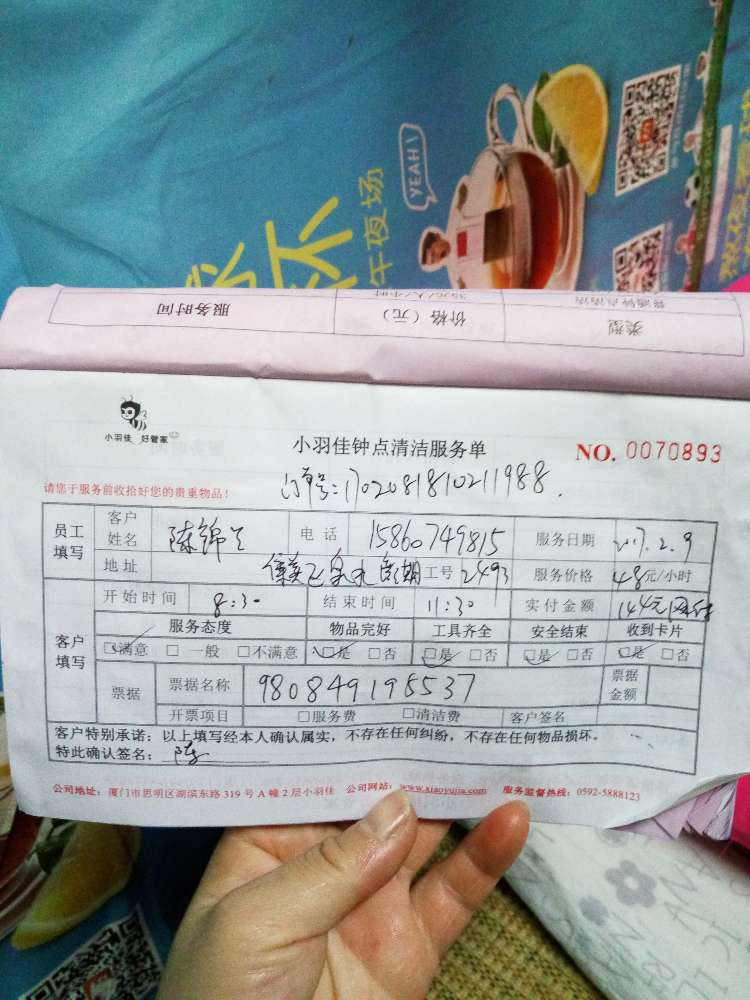 YEAH!
午夜场
服务时间 价格（元） 类型
35元/人/小时 普通钟点清洁
小羽佳 好管家
小羽佳钟点清洁服务单
NO. 0070893
请您于服务前收拾好您的贵重物品！
订单号：170208181021198​8
员工填写 客户姓名 陈锦兰 电话 15860749815 服务日期 2017.2.9
地址 工号 2493 服务价格 48元/小时
客户填写 开始时间 8:30 结束时间 11:30 实付金额 144元网付
服务态度 物品完好 工具齐全 安全结束 收到卡片
☑满意 □一般 □不满意 ☑是 □否 ☑是 □否 ☑是 □否 ☑是 □否
票据 票据名称 980849195537 票据金额
开票项目 □服务费 □清洁费 客户签名
客户特别承诺：以上填写经本人确认属实，不存在任何纠纷，不存在任何物品损坏。
特此确认签名：陈
公司地址：厦门市思明区湖滨东路 319 号 A 幢 2 层小羽佳 公司网站：www.xiaoyujia.com 服务监督热线：0592-5888123